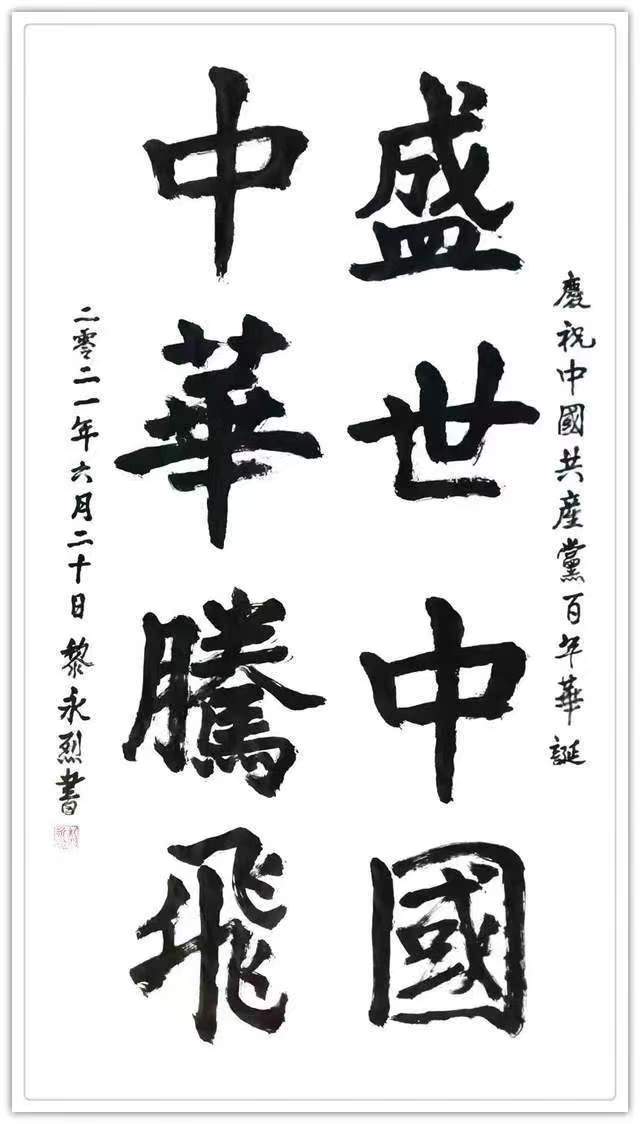 慶祝中國共產黨百年華誕
盛世中國
中華騰飛
二零二一年六月二十日黎永烈書